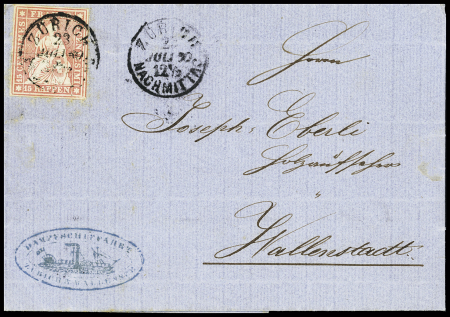 ZÜRICH
23
JULI
RAPPEN
ZÜRICH
JULI
12½
NACHMITTAG
Herrn
Joseph Eberli
Holzaufseher
in
Wallenstadt
DAMPFSCHIFFAHRT
ZÜRICH & WALLENSEE